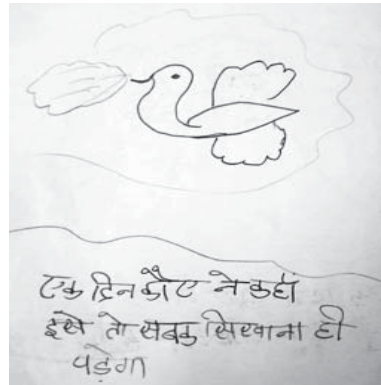 एक दिन कौए ने कहां
इसे तो सबक सिखाना ही
पड़ेगा